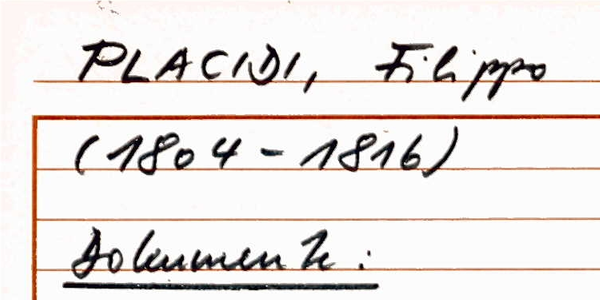 PLACIDI, Filippo
(1804 - 1816)
Dokumente: